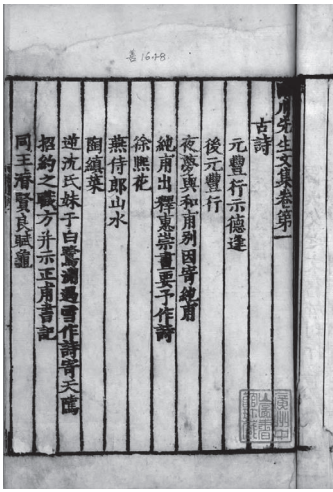 善1648
川先生文集卷第一
古詩
元豐行示德逢
後元豐行
夜夢與和甫別因寄純甫
純甫出釋惠崇畫要予作詩
徐熙花
燕侍郎山水
陶縝菜
逆沈氏妹于白鷺洲遇雪作詩寄天騭
招約之職方并示正甫書記
同王濬賢良賦龜